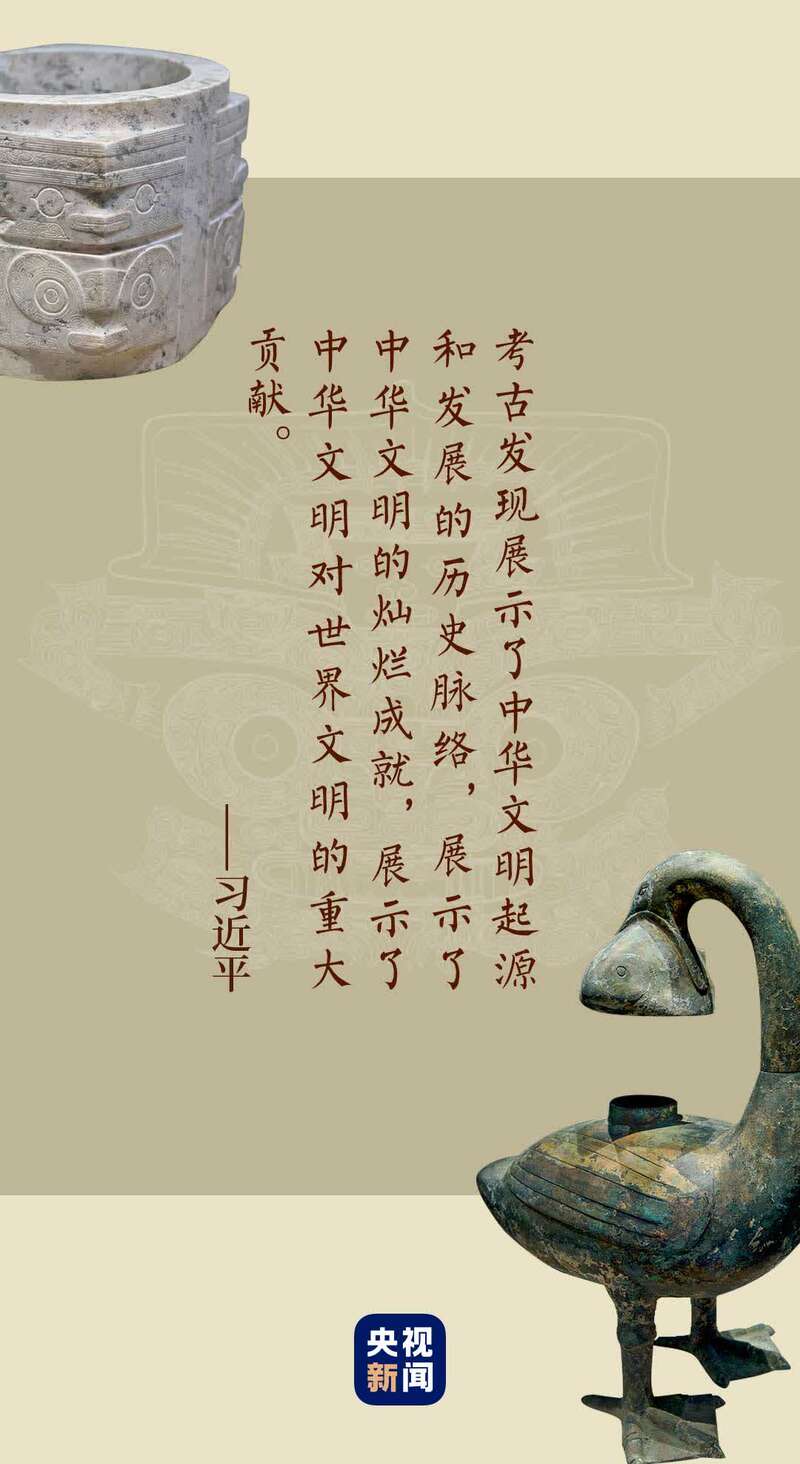 考古发现展示了中华文明起源
和发展的历史脉络，展示了
中华文明的灿烂成就，展示了
中华文明对世界文明的重大
贡献。
——习近平
央视
新闻